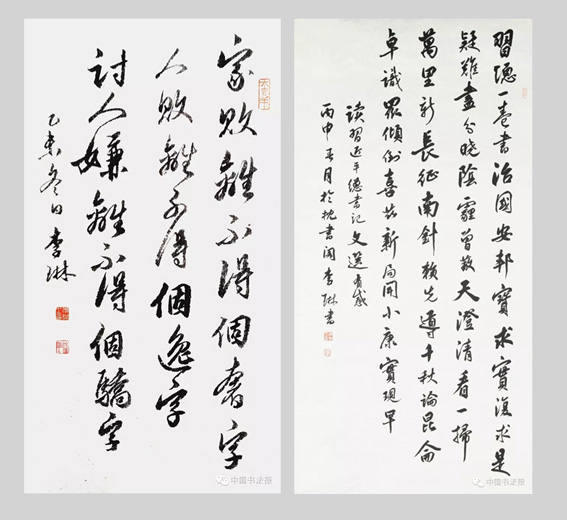 家敗離不得個奢字
人敗離不得個逸字
討人嫌離不得個驕字
乙未冬日 李琳
中国书法报
習總一卷書治國安邦寶求實復求是
疑難盡分曉陰霾曾散天澄清看一掃
萬里新長征南針賴先導千秋論昆侖
卓識眾傾倒喜新局開小康實現早
读習近平總書记文選有感
丙申月於枕書閣李琳書
中国书法报